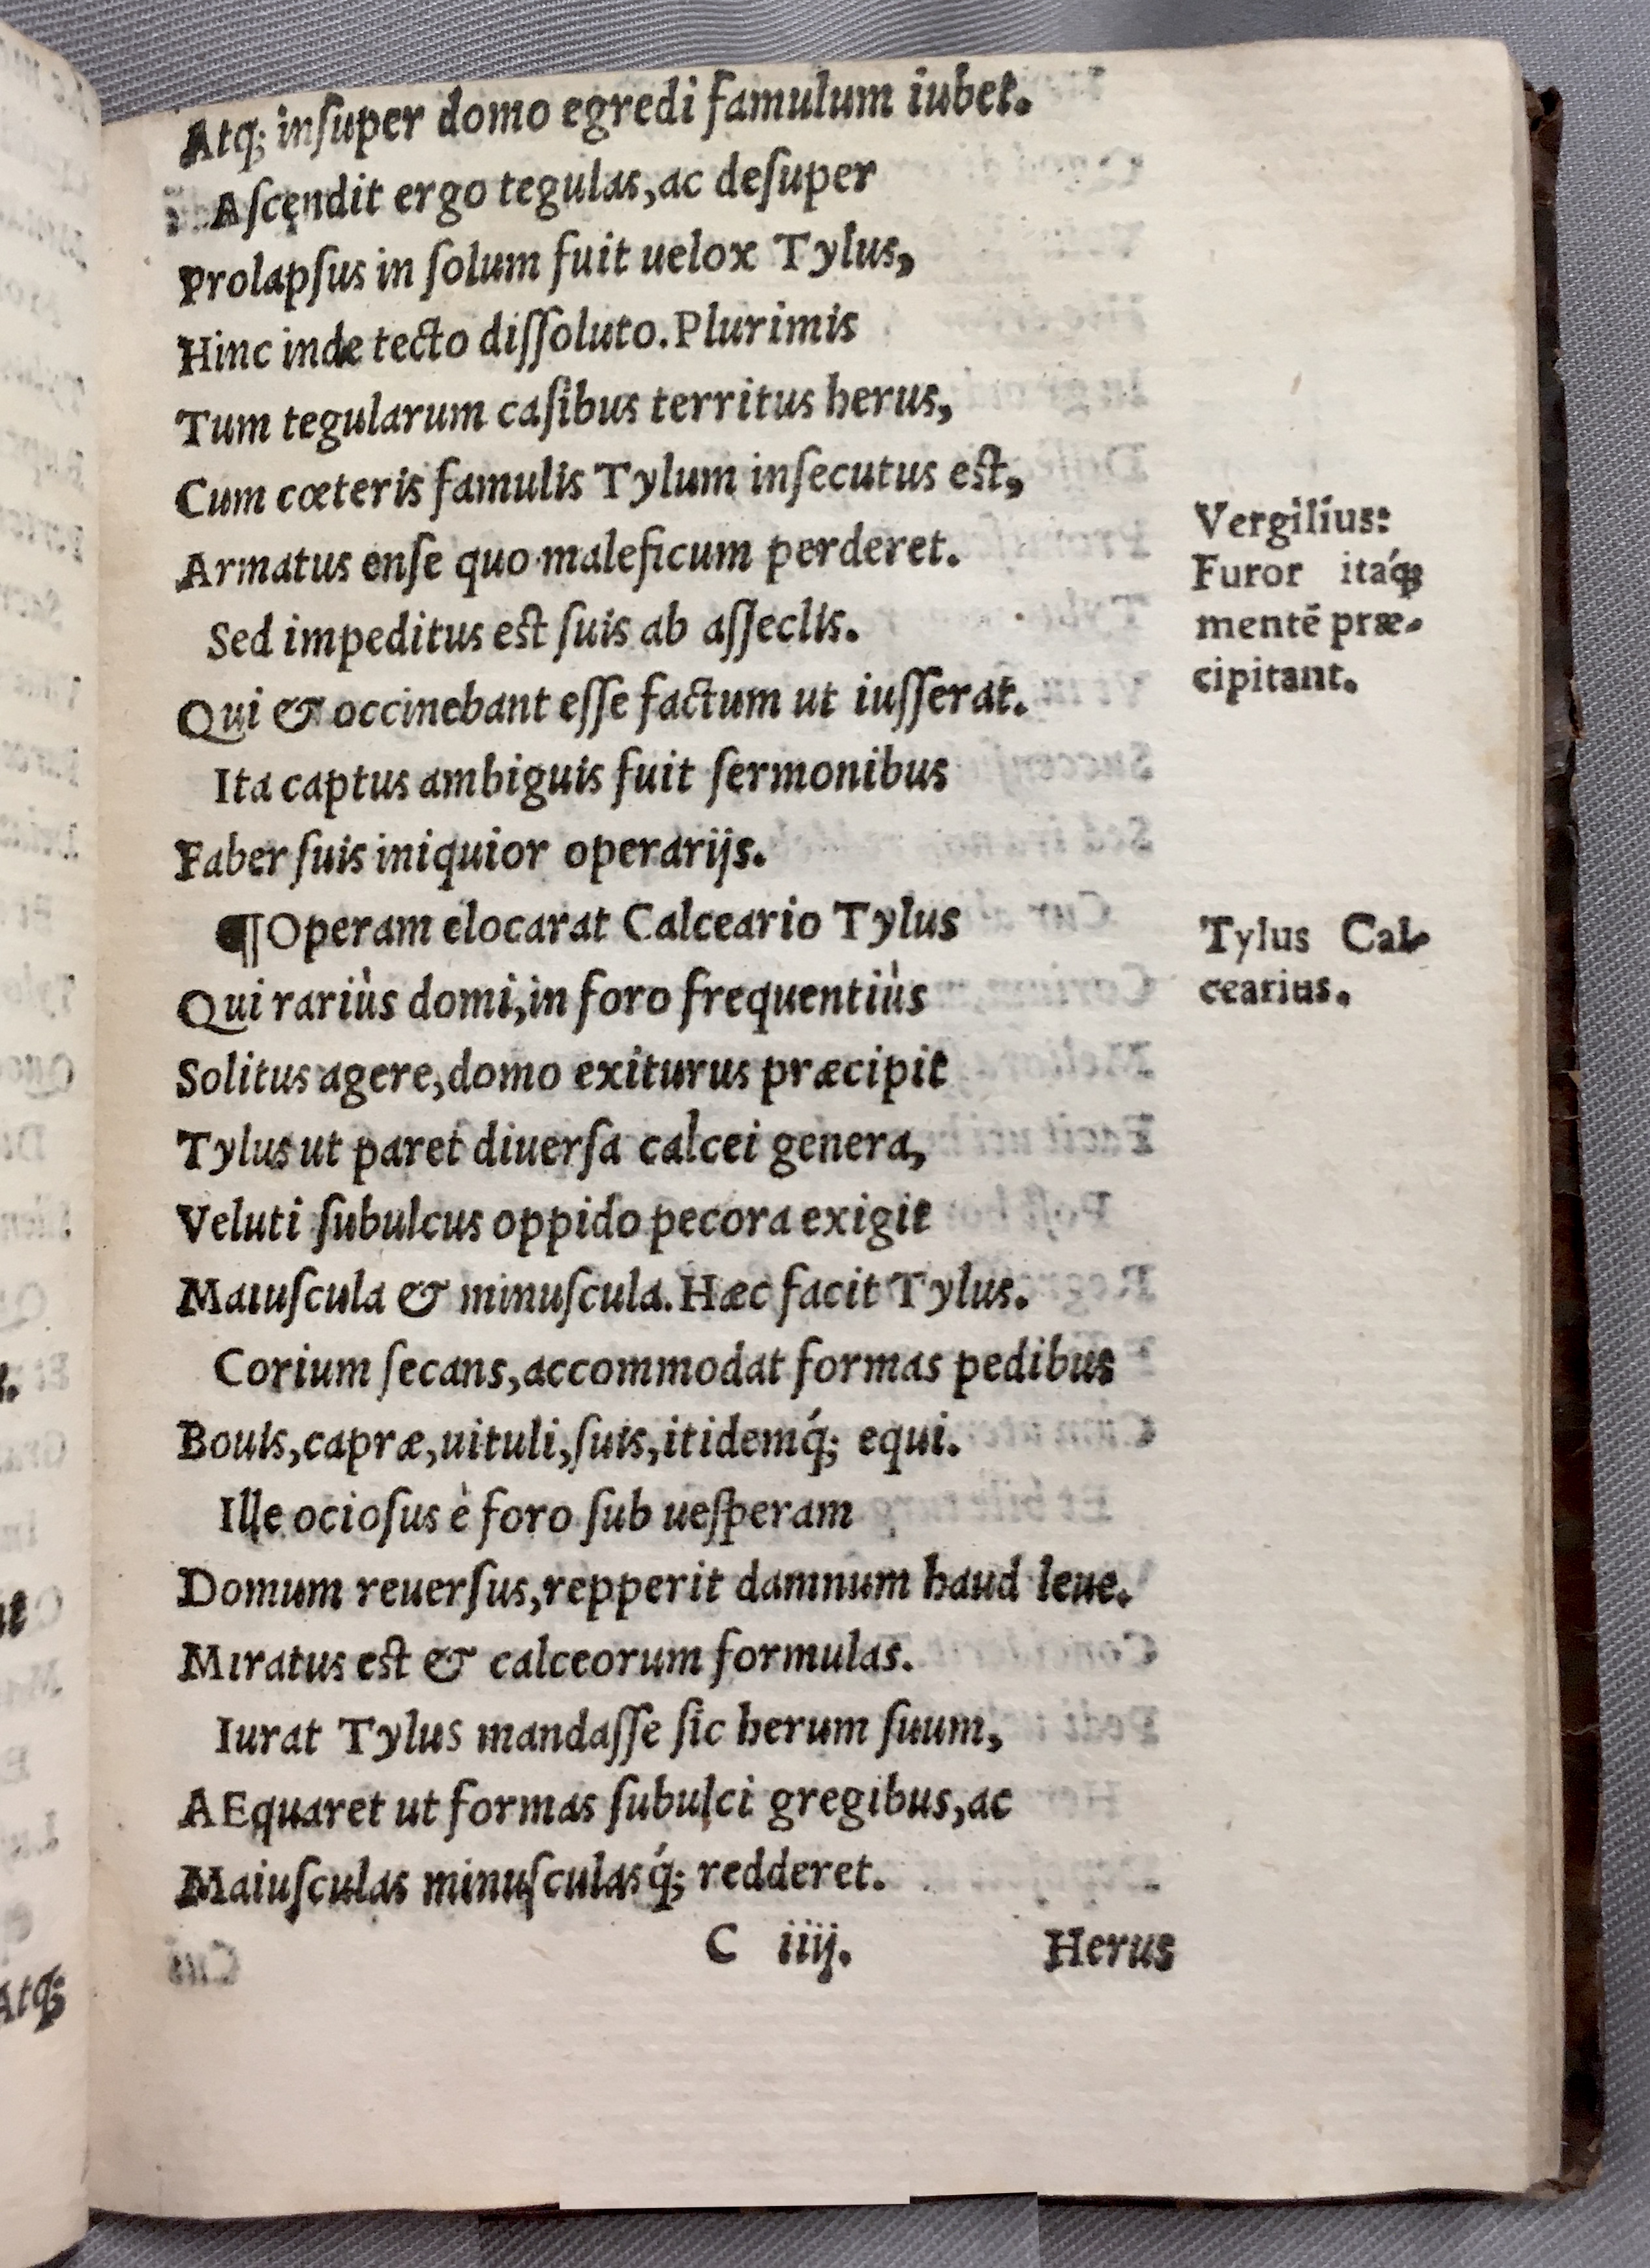 Atq; inſuper domo egredi famulum iubet.
Aſcendit ergo tegulas, ac deſuper
Prolapſus in ſolum fuit uelox Tylus,
Hinc inde tecto diſſoluto. Plurimis
Tum tegularum caſibus territus herus,
Cum cœteris famulis Tylum inſecutus eſt,
Armatus enſe quo maleficum perderet.
Sed impeditus eſt ſuis ab aſſeclis.
Qui & occinebant eſſe factum ut iuſſerat.
Ita captus ambiguis fuit ſermonibus
Faber ſuis iniquior operarijs.
¶ Operam elocarat Calceario Tylus
Qui rariùs domi, in foro frequentiùs
Solitus agere, domo exiturus præcipit
Tylus ut paret diuerſa calcei genera,
Veluti ſubulcus oppido pecora exigit
Maiuſcula & minuſcula. Hæc facit Tylus.
Corium ſecans, accommodat formas pedibus
Bouis, capræ, uituli, ſuis, itidemq́; equi.
Ille ocioſus è foro ſub ueſperam
Domum reuerſus, repperit damnum haud leue.
Miratus eſt & calceorum formulas.
Iurat Tylus mandaſſe ſic herum ſuum,
AEquaret ut formas ſubulci gregibus, ac
Maiuſculas minuſculasq́; redderet.
C iiij. Herus
Vergilius:
Furor itáq;
mentē præ-
cipitant.
Tylus Cal-
cearius.
Atq;